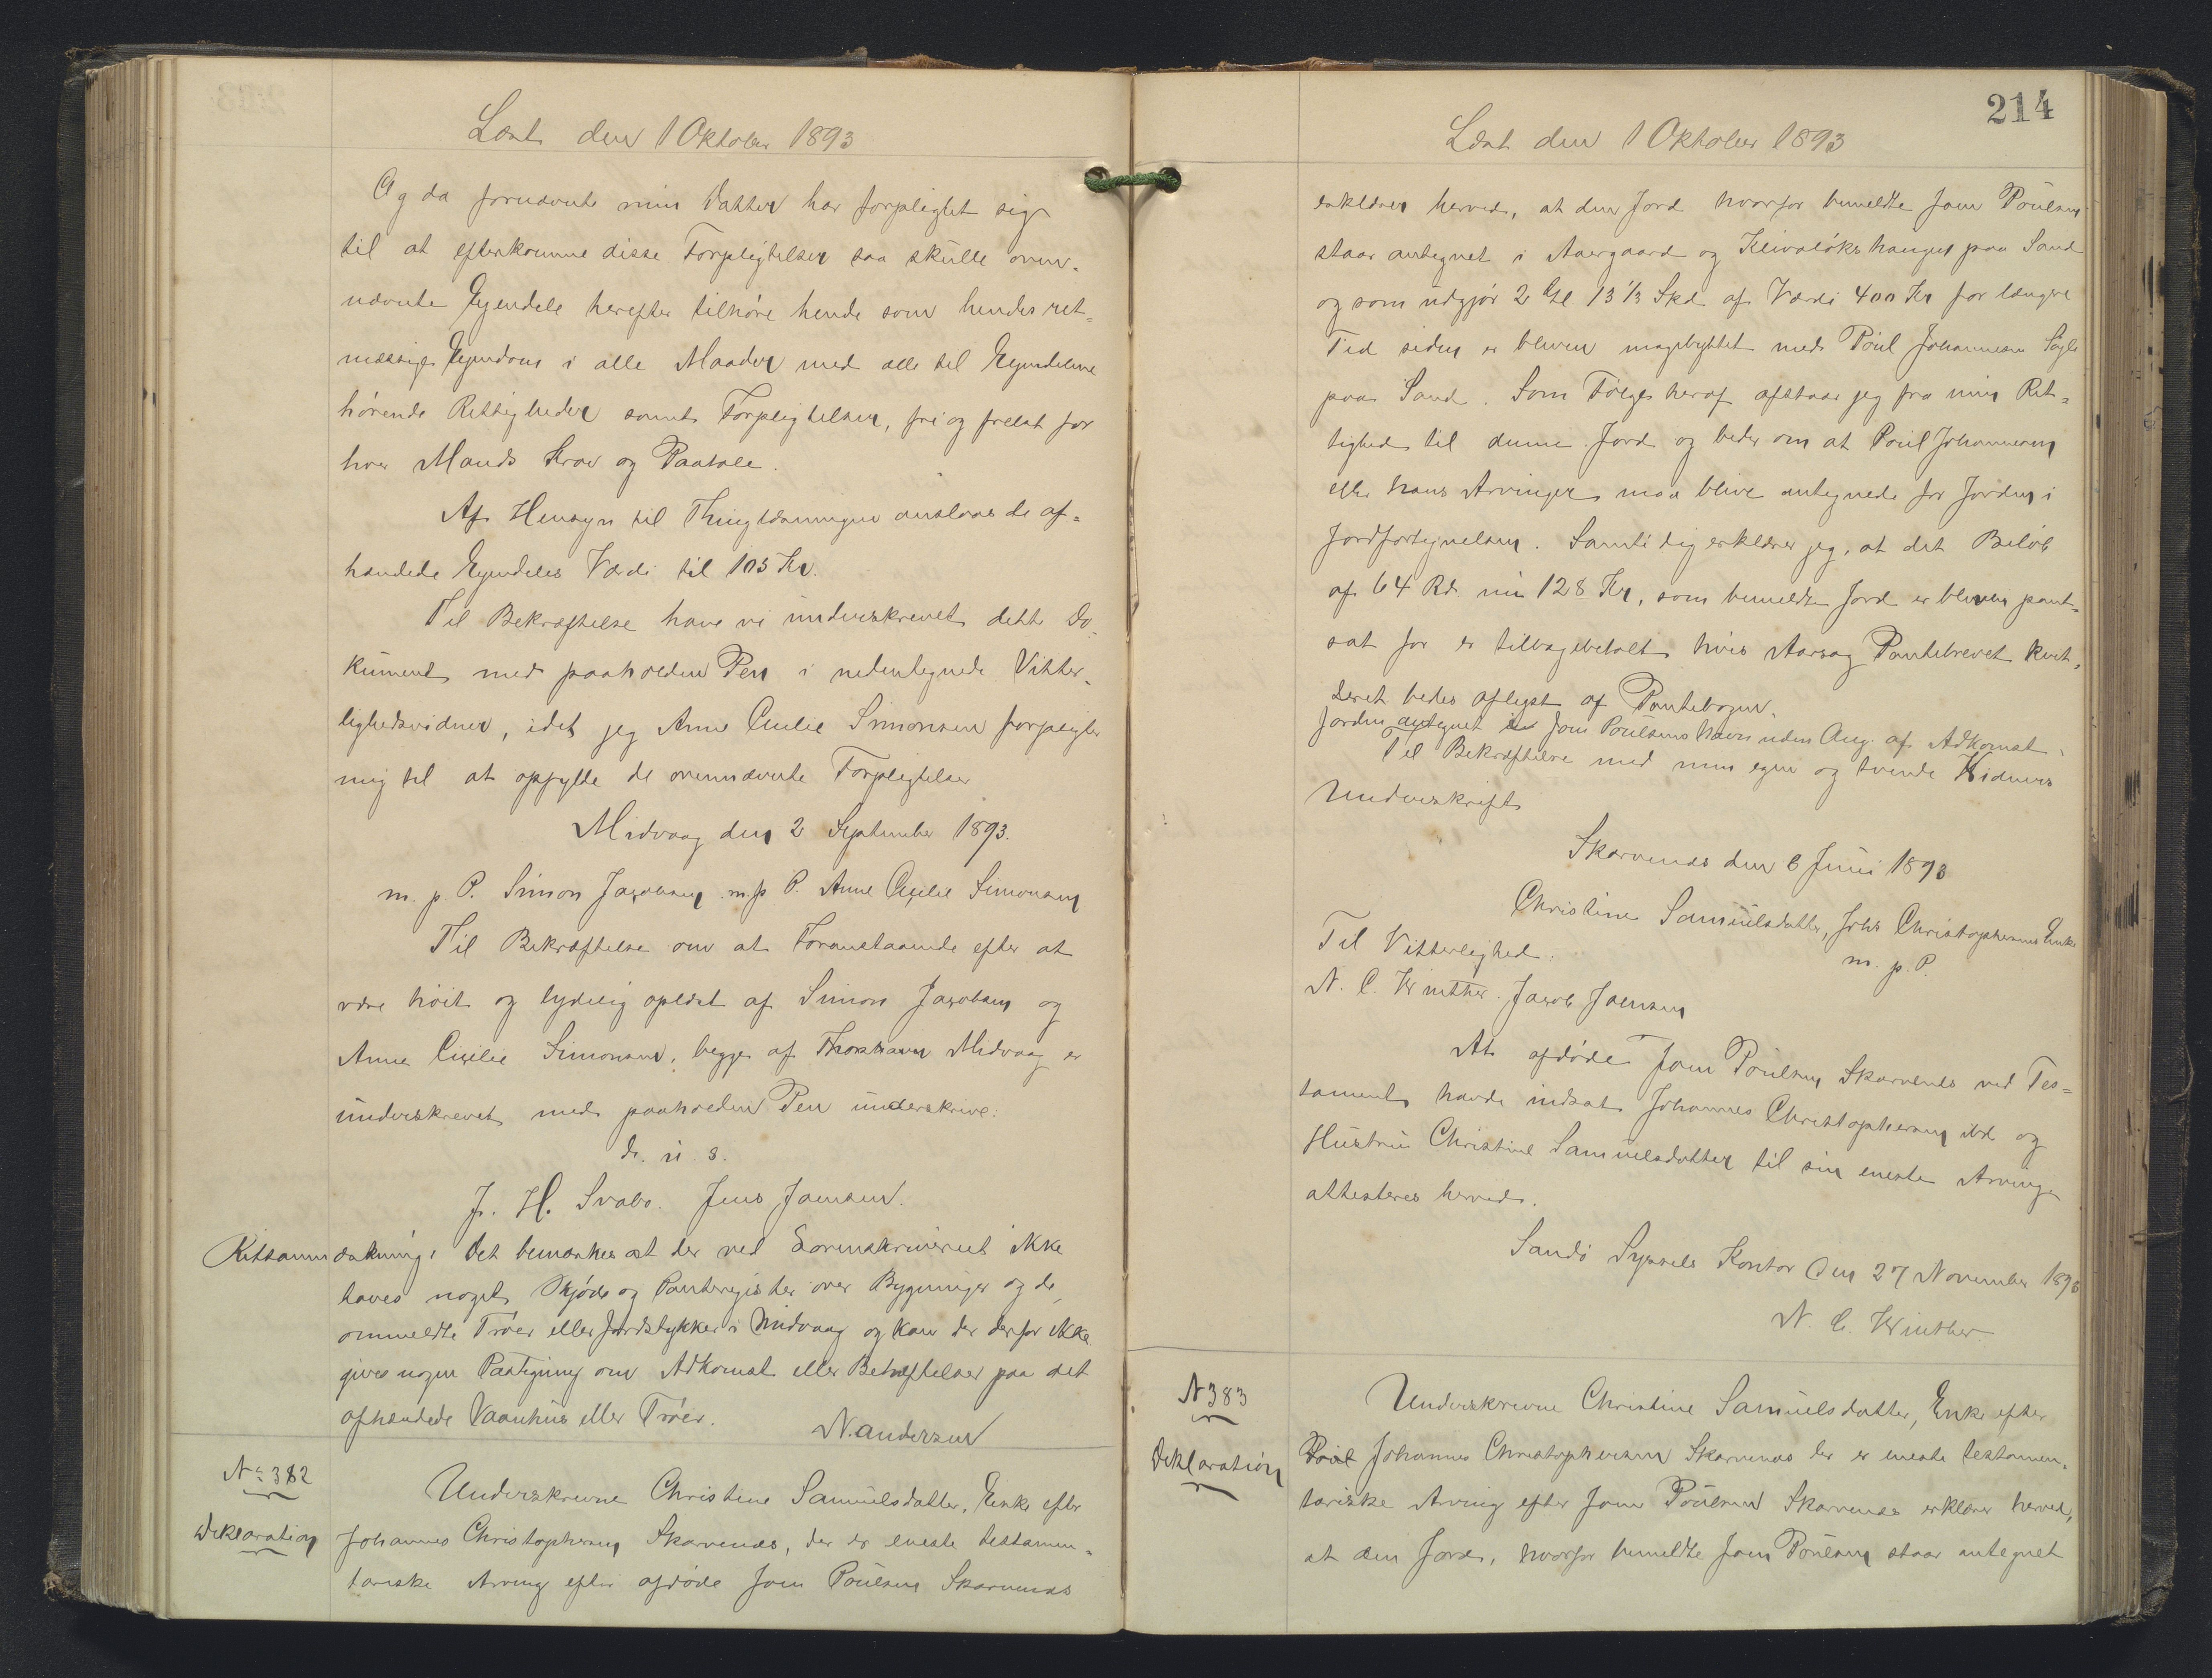 Læst den 1 Oktober 1893
Og da fornævnte min Datter har forpligtet sig
til at efterkomme disse Forpligtelser saa skulle oven-
nævnte Ejendele herefter tilhøre hende som hendes ret-
mæssige Ejendom i alle Maader med alle til Ejendelene
hørende Rettigheder samt Forpligtelser, fri og frelst for
hver Mands Krav og Paatale.
Af Hensyn til Thinglæsningen anslaaes de af-
hændede Ejendeles Værdi til 105 Kr.
Til Bekræftelse have vi underskrevet dette Do-
kument med paaholden Pen i nedentegnede Vitter-
lighedsvidner, idet jeg Anne Cicilie Simonsen forpligter
mig til at opfylde de ovennævnte Forpligtelser
Midvaag den 2 September 1893.
m. p P. Simon Jacobsen m. p P. Anne Cicilie Simonsen
Til Bekræftelse om at Foranstaaende efter at
være høit og lydelig oplæst af Simon Jacobsen og
Anne Cicilie Simonsen, begge af Thorshavn Midvaag er
underskrevet med paaholden Pen underskrive.
d. u. s.
J. H. Svabo. Jens Joensen.
Retsanmærkning: Det bemærkes at der ved Sorenskriveriet ikke
haves noget Skjøde og Panteregister over Bygninger og de
ommeldte Trøer eller Jordstykker i Midvaag og kan der derfor ikke
gives nogen Paategning om Adkomst eller Behæftelser paa det
afhændede Vaanhus eller Trøer.
N. Andersen
No 382
Deklaration
Underskrevne Christine Samuelsdatter, Enke efter
Johannes Christophersen Skarvenæs, der er eneste testamen-
tariske Arving efter afdøde Joen Poulsen Skarvenæs
214
Læst den 1 Oktober 1893
erklærer herved, at den Jord hvorfor bemeldte Joen Poulsen
staar antegnet i Aaergaard og Kleivaløkshauges paa Sand
og som udgjør 2 Gl 13 1/3 Skd af Værdi 400 Kr for længere
Tid siden er bleven magebyttet med Poul Johannesen
paa Sand. Som Følge heraf afstaar jeg fra min Ret-
tighed til denne Jord og beder om at Poul Johannesen
eller hans Arvinger maa blive antegnede for Jorden i
Jordfortegnelsen. Samtidig erklærer jeg, at det Beløb
af 64 Rd. nu 128 Kr, som bemeldte Jord er bleven pant-
sat for er tilbagebetalt hvis Aarsag Pantebrevet kvit-
teret bedes aflyst af Pantebogen.
Jorden antegnet i Joen Poulsens Navn uden Ang. af Adkomst.
Til Bekræftelse med min egen og tvende Vidners
Underskrift
Skarvenæs den 6 Juni 1893
Christine Samuelsdatter, Johs Christophersens Enke
m. p. P.
Til Vitterlighed:
N. C. Winther. Jacob Joensen
At afdøde Joen Poulsen Skarvenæs ved Tes-
tament havde indsat Johannes Christophersen ibd. og
Hustru Christine Samuelsdatter til sin eneste Arving
attesteres herved.
Sandø Syssels Kontor den 27 November 1893
N. C. Winther.
N 383
Deklaration
Underskrevne Christine Samuelsdatter, Enke efter
Poul Johannes Christophersen Skarvenæs der er eneste testamen-
tariske Arving efter Joen Poulsen Skarvenæs erklærer herved,
at den Jord, hvorfor bemeldte Joen Poulsen staar antegnet